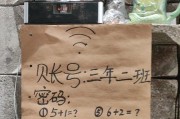 账号:三年二班
密码:
①5+1=? ②6+2=?